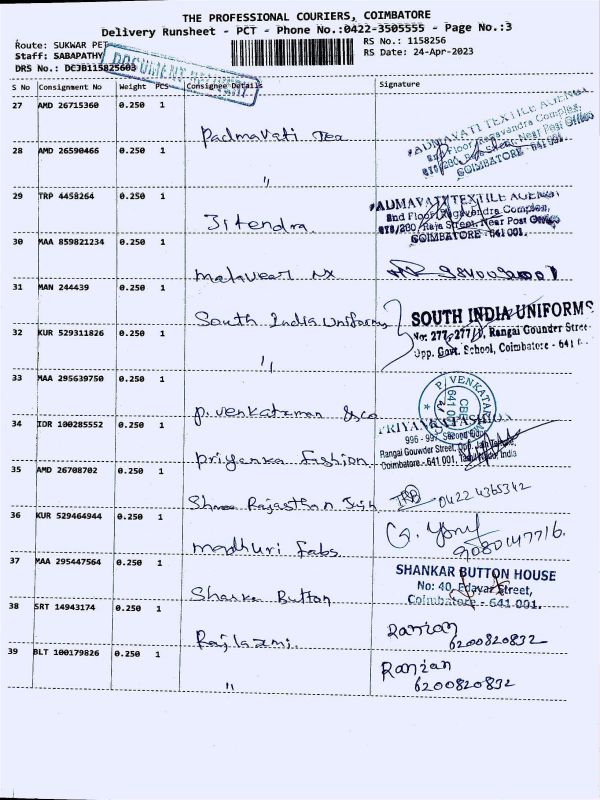 THE PROFESSIONAL COURIERS, COIMBATORE
Delivery Runsheet - PCT - Phone No.:0422-3505555 - Page No.:3
Route: SUKWAR PET RS No.: 1158256
Staff: SABAPATHY RS Date: 24-Apr-2023
DRS No.: DCJB115825603
DOCUMENT
S No Consignment No Weight PCS Consignee Details Signature
27 AMD 26715360 0.250 1
Padmavati Tex
PADMAVATI TEXTILE AGENCY
2nd Floor, Ragavendra Complex,
678/280, Raja Street, Near Post Office
COIMBATORE - 641 001.
28 AMD 26590466 0.250 1
"
29 TRP 4458264 0.250 1
Jitendra.
PADMAVATI TEXTILE AGENCY
2nd Floor, Ragavendra Complex,
678/280, Raja Street, Near Post Office
COIMBATORE - 641 001.
30 MAA 859821234 0.250 1
31 MAN 244439 0.250 1
South India Uniforms
SOUTH INDIA UNIFORMS
No: 277-277/1, Rangai Gounder Street
Opp. Govt. School, Coimbatore - 641
32 KUR 529311826 0.250 1
"
33 MAA 295639750 0.250 1
P. Venkatraman & co
P. VENKATARAMAN
CBE
641 001
34 IDR 100285552 0.250 1
Priyanka Fashion
PRIYANKA FASHION
996 - 997, Second Floor,
Rangai Gowder Street, Opp. Jain Temple,
Coimbatore - 641 001, Tamil Nadu, India
35 AMD 26708702 0.250 1
Shree Rajasthan
0422 4365342
36 KUR 529464944 0.250 1
Madhuri Fabs
9080147716.
37 MAA 295447564 0.250 1
Shankar Button
SHANKAR BUTTON HOUSE
No: 40, Edayar Street,
Coimbatore - 641 001.
38 SRT 14943174 0.250 1
Rajlaxmi.
Ranjan
6200820832
39 BLT 100179826 0.250 1
"
Ranjan
6200820832